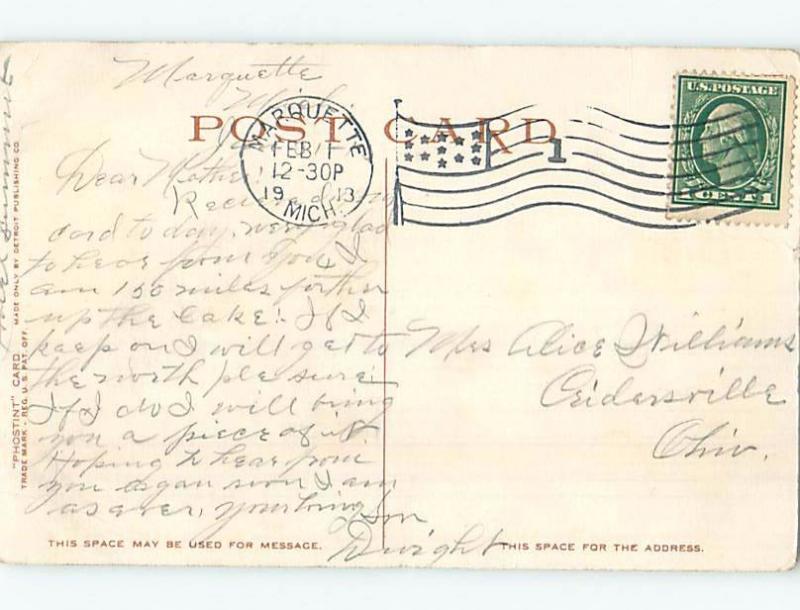 Marquette
Mich
POST CARD
MARQUETTE
FEB 1
12-30P
19 13
MICH.
1
U.S. POSTAGE
1 CENT 1
Dear Mother
Received
card to day, very glad
to hear from you I
am 150 miles forther
up the Lake. If I
keep on I will get to
the north ple sure
If I do I will bring
you a piece of it.
Hoping to hear from
you agan soon I am
as aver, your loving Son
Dwight
Mrs Alice Williams
Ceidersville
Ohio.
THIS SPACE MAY BE USED FOR MESSAGE.
THIS SPACE FOR THE ADDRESS.
"PHOSTINT" CARD MADE ONLY BY DETROIT PUBLISHING CO.
TRADE MARK - REG. U.S. PAT. OFF.